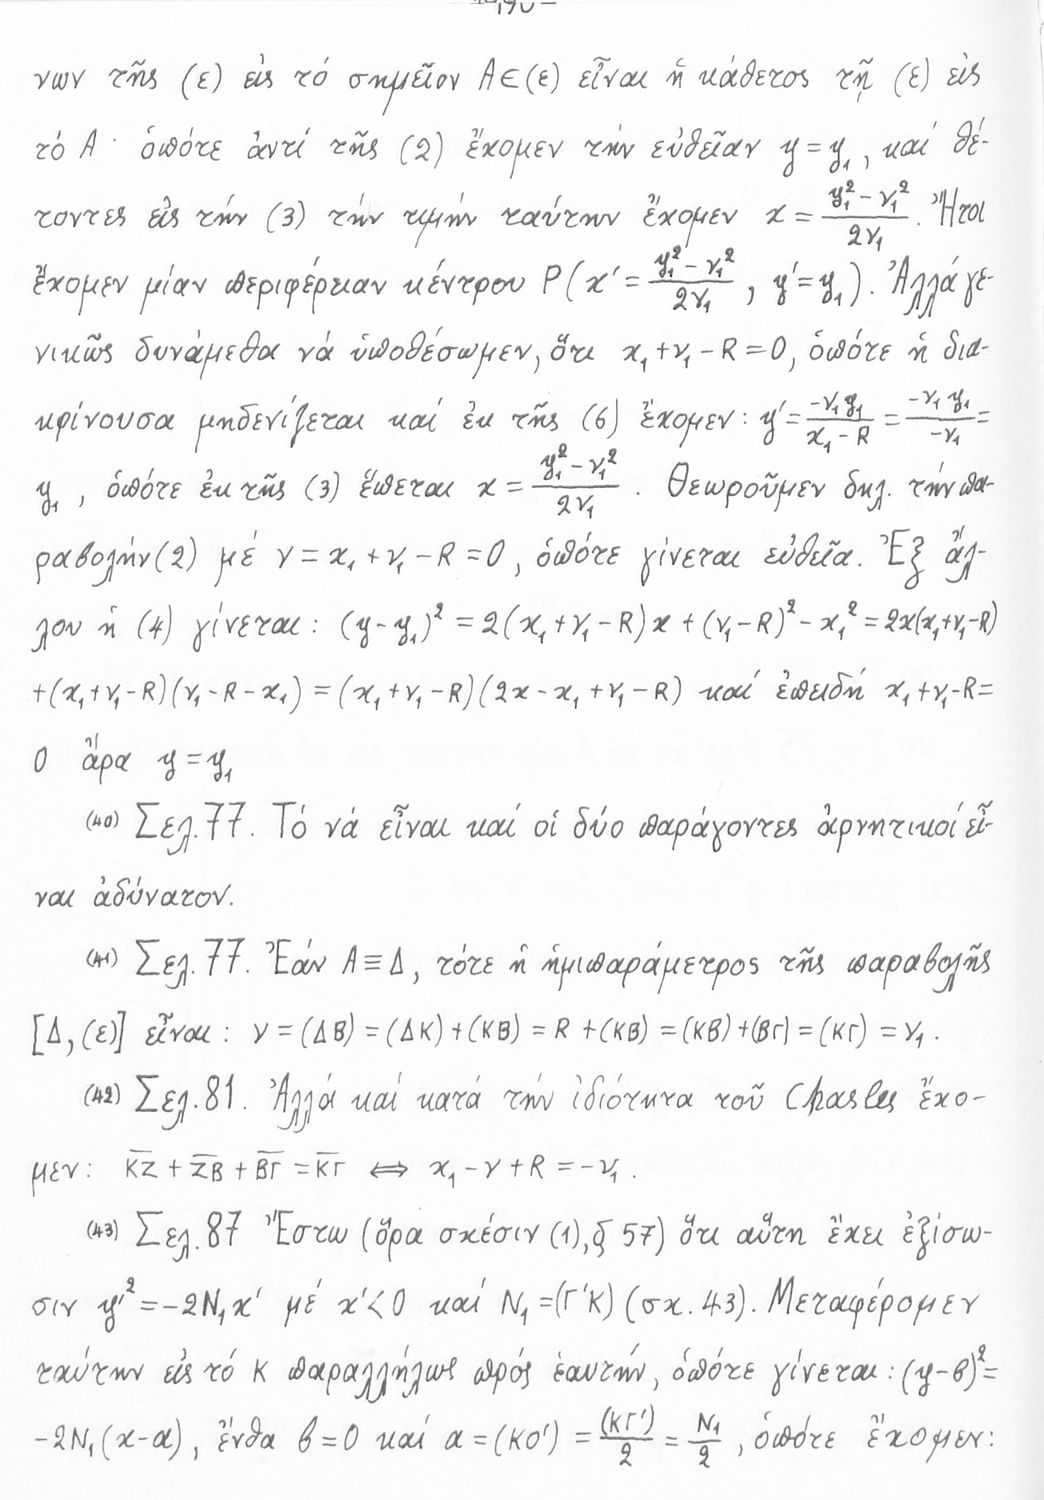 νων τῆς (ε) εἰς τό σημεῖον A∈(ε) εἶναι ἡ κάθετος τῇ (ε) εἰς
τό A· ὁπότε ἀντί τῆς (2) ἔχομεν τήν εὐθεῖαν y=y₁, καί θέ-
τοντες εἰς τήν (3) τήν τιμήν ταύτην ἔχομεν x = (y₁² - ν₁²)/2ν₁. Ἤτοι
ἔχομεν μίαν περιφέρειαν κέντρου P(x' = (y₁² - ν₁²)/2ν₁, y'=y₁). Ἀλλά γε-
νικῶς δυνάμεθα νά ὑποθέσωμεν, ὅτι x₁+ν₁-R=0, ὁπότε ἡ δια-
κρίνουσα μηδενίζεται καί ἐκ τῆς (6) ἔχομεν: y' = -ν₁y₁/(x₁-R) = -ν₁y₁/-ν₁ =
y₁, ὁπότε ἐκ τῆς (3) ἕπεται x = (y₁² - ν₁²)/2ν₁. Θεωροῦμεν δηλ. τήν πα-
ραβολήν (2) μέ ν = x₁+ν₁-R=0, ὁπότε γίνεται εὐθεῖα. Ἐξ ἄλ-
λου ἡ (4) γίνεται: (y-y₁)² = 2(x₁+ν₁-R)x + (ν₁-R)² - x₁² = 2x(x₁+ν₁-R)
+(x₁+ν₁-R)(ν₁-R-x₁) = (x₁+ν₁-R)(2x-x₁+ν₁-R) καί ἐπειδή x₁+ν₁-R=
0 ἄρα y=y₁
(40) Σελ. 77. Τό νά εἶναι καί οἱ δύο παράγοντες ἀρνητικοί εἶ-
ναι ἀδύνατον.
(41) Σελ. 77. Ἐάν A≡Δ, τότε ἡ ἡμιπαράμετρος τῆς παραβολῆς
[Δ,(ε)] εἶναι: ν = (ΔB) = (ΔK) + (KB) = R + (KB) = (KB) + (BΓ) = (KΓ) = ν₁.
(42) Σελ. 81. Ἀλλά καί κατά τήν ἰδιότητα τοῦ Chasles ἔχο-
μεν: K̅Z̅ + Z̅B̅ + B̅Γ̅ = K̅Γ̅ ⇔ x₁-ν+R=-ν₁.
(43) Σελ. 87 Ἔστω (ὅρα σχέσιν (1), § 57) ὅτι αὕτη ἔχει ἐξίσω-
σιν y'² = -2N₁x' μέ x'<0 καί N₁=(Γ'K) (σχ. 43). Μεταφέρομεν
ταύτην εἰς τό K παραλλήλως πρός ἑαυτήν, ὁπότε γίνεται: (y-β)² =
-2N₁(x-α), ἔνθα β=0 καί α=(KO') = (KΓ')/2 = N₁/2, ὁπότε ἔχομεν: